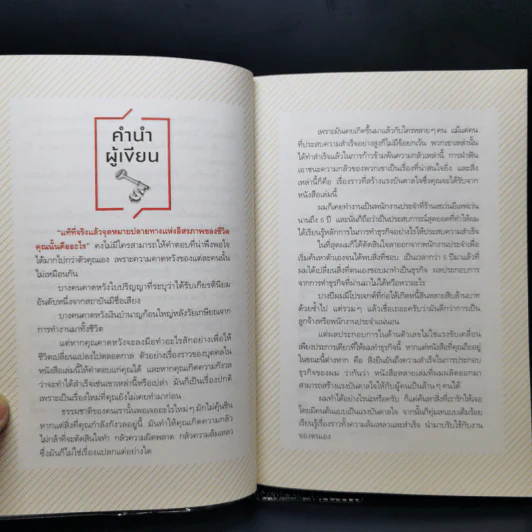 คำนำ
ผู้เขียน
"แท้ที่จริงแล้วจุดหมายปลายทางแห่งอิสรภาพของชีวิต
คุณนั้นคืออะไร" คงไม่มีใครสามารถให้คำตอบที่น่าพึงพอใจ
ได้มากไปกว่าตัวคุณเอง เพราะความคาดหวังของแต่ละคนนั้น
ไม่เหมือนกัน
บางคนคาดหวังใบปริญญาที่ระบุว่าได้รับเกียรตินิยม
อันดับหนึ่งจากสถาบันมีชื่อเสียง
บางคนคาดหวังเงินบำนาญก้อนใหญ่หลังวัยเกษียณจาก
การทำงานมาทั้งชีวิต
แต่หากคุณคาดหวังจะลงมือทำอะไรสักอย่างเพื่อให้
ชีวิตเปลี่ยนแปลงไปตลอดกาล ตัวอย่างเรื่องราวของบุคคลใน
หนังสือเล่มนี้ให้คำตอบแก่คุณได้ และหากคุณเกิดความกังวล
ว่าจะทำได้สำเร็จเช่นเขาเหล่านี้หรือเปล่า มันก็เป็นเรื่องปกติ
เพราะเป็นเรื่องใหม่ที่คุณยังไม่เคยทำมาก่อน
ธรรมชาติของคนเรานั้นพอเจออะไรใหม่ๆ มักไม่คุ้นชิน
หากแต่สิ่งที่คุณกำลังกังวลอยู่นี้ มันทำให้คุณเกิดความกลัว
ไม่กล้าที่จะตัดสินใจทำ กลัวความผิดพลาด กลัวความล้มเหลว
ซึ่งมันก็ไม่ใช่เรื่องแปลกแต่อย่างใด
เพราะมันเคยเกิดขึ้นมาแล้วกับใครหลายๆ คน แม้แต่คน
ที่ประสบความสำเร็จอย่างสูงก็ไม่มีข้อยกเว้น พวกเขาเหล่านั้น
ได้ทำสำเร็จแล้วในการก้าวข้ามพ้นความกลัวเหล่านี้ การฝ่าฟัน
เอาชนะความกลัวของพวกเขาเป็นเรื่องที่น่าสนใจยิ่ง และสิ่ง
เหล่านี้ก็คือ เรื่องราวที่สร้างแรงบันดาลใจซึ่งคุณจะได้รับจาก
หนังสือเล่มนี้
ผมก็เคยทำงานเป็นพนักงานประจำที่ร้านเซเว่นอีเลฟเว่น
นานถึง 6 ปี และนั่นก็ถือว่าเป็นประสบการณ์สุดยอดที่ทำให้ผม
ได้เรียนรู้หลักการในการทำธุรกิจอย่างไรให้ประสบความสำเร็จ
ในที่สุดผมก็ได้ตัดสินใจลาออกจากพนักงานประจำเพื่อ
เริ่มค้นหาตัวเองจนได้พบสิ่งที่ชอบ เป็นเวลากว่า 6 ปีมาแล้วที่
ผมได้เปลี่ยนสิ่งที่ตนเองชอบมาทำเป็นธุรกิจ ผลประกอบการ
จากการทำธุรกิจที่ผ่านมาไม่ได้ไต้หวือหวาอะไร
บางปีผมมีโปรเจกต์ที่ก่อให้เกิดหนี้สินหลายสิบล้านบาท
ด้วยซ้ำไป แต่รวมๆ แล้วเชื่อเถอะครับว่ามันดีกว่าการเป็น
ลูกจ้างหรือพนักงานประจำแน่นอน
แต่ผลประกอบการในด้านตัวเลขไม่ใช่แรงขับเคลื่อน
เพียงประการเดียวที่ให้ผมทำธุรกิจนี้ หากแต่หนังสือที่คุณถืออยู่
ในขณะนี้ต่างหาก คือ สิ่งยืนยันถึงความสำเร็จในการประกอบ
ธุรกิจของผม ว่ากันว่า หนังสือหลายเล่มที่ผมผลิตออกมา
สามารถสร้างแรงบันดาลใจให้กับผู้คนเป็นล้านๆ คนได้
ผมทำได้อย่างไรน่ะหรือครับ ก็แค่ค้นหาสิ่งที่เรารักให้เจอ
โดยมีคนต้นแบบเป็นแรงบันดาลใจ จากนั้นก็ทุ่มเทแบบเต็มร้อย
เรียนรู้เรื่องราวทั้งความล้มเหลวและสำเร็จ นำมาปรับใช้กับงาน
ของตนเอง